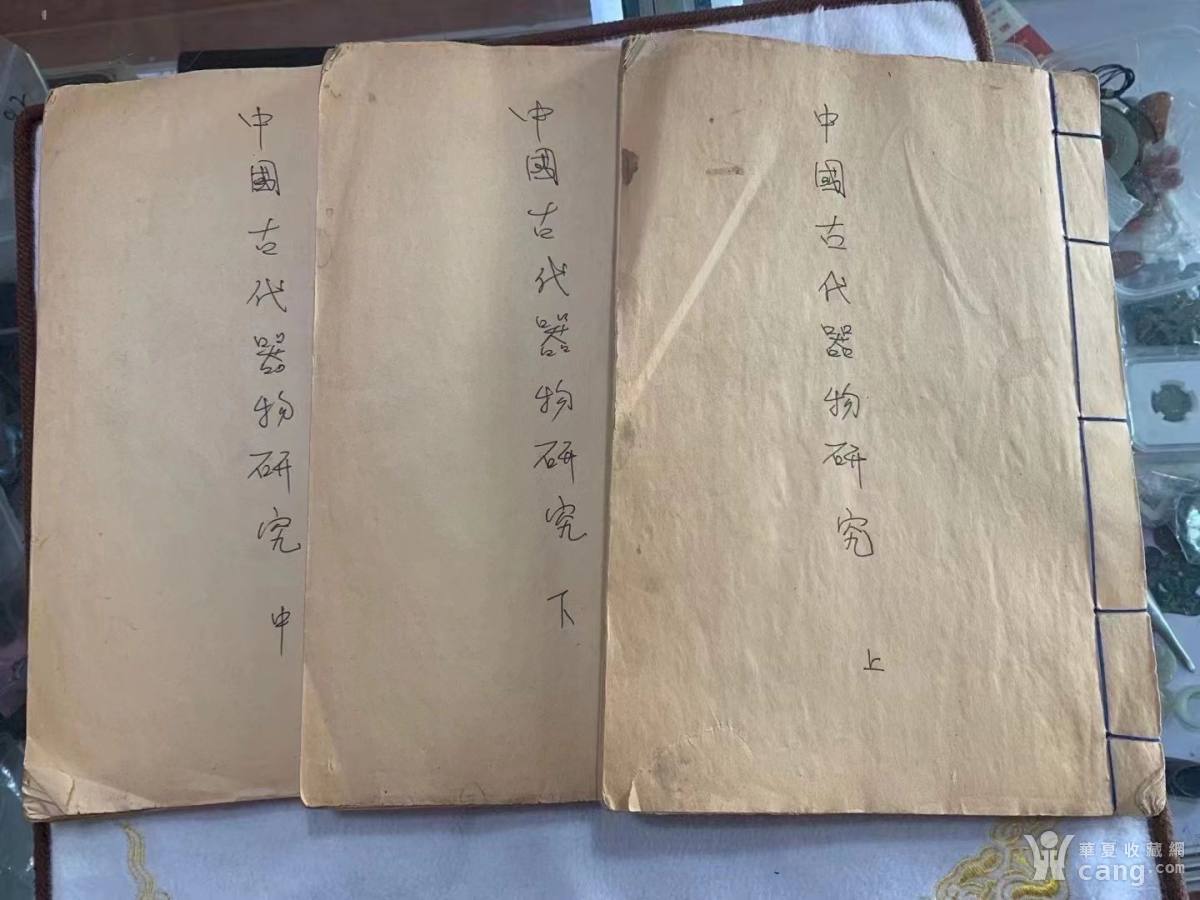 中國古代器物研究 上
中國古代器物研究 下
中國古代器物研究 中
華夏收藏網
cang.com